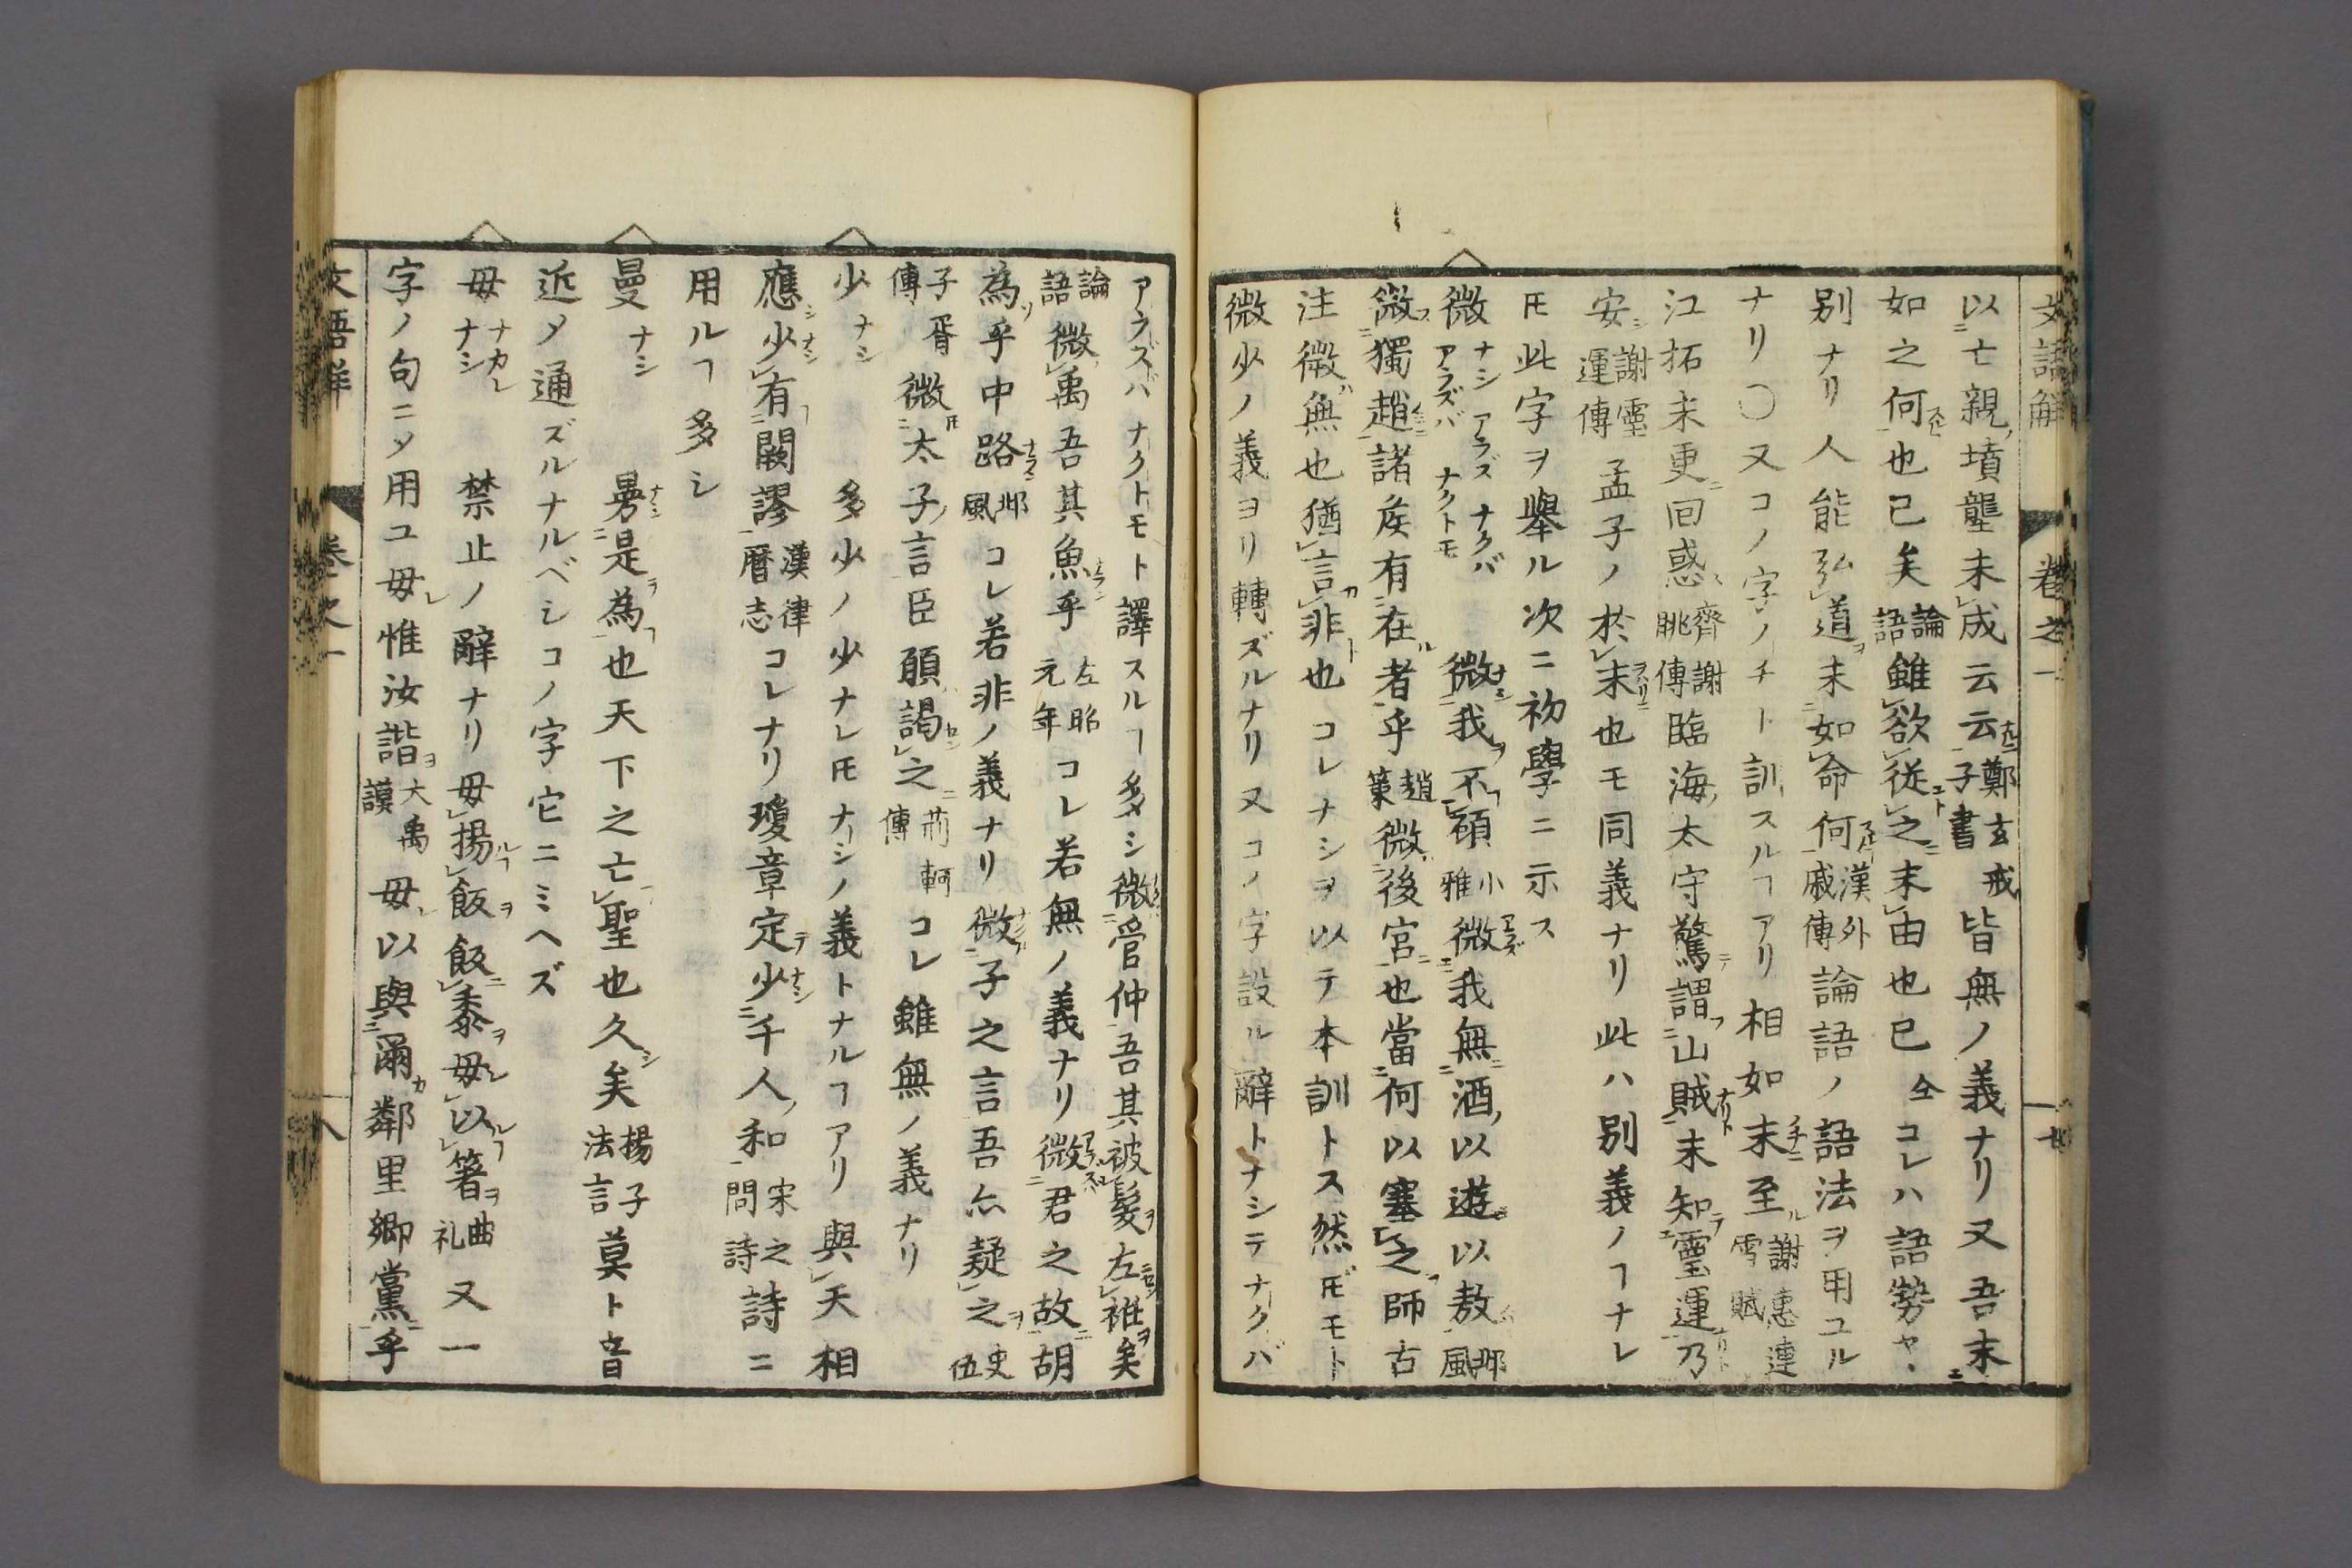 文語解 卷之一 七
以亡親墳壟未成云云鄭玄戒子書皆無ノ義ナリ又吾末
如之何也已矣論語雖欲從之末由也已仝コレハ語勢ヤヽ
別ナリ人能弘道末如命何漢外戚傳論語ノ語法ヲ用ユル
ナリ〇又コノ字ノチト訓スルヿアリ相如末至謝惠連雪賦
江拓未更回惑齊謝朓傳臨海太守驚謂山賊末知靈運乃
安謝靈運傳孟子ノ於末也モ同義ナリ此ハ別義ノヿナレ
𪜈此字ヲ舉ル次ニ初學ニ示ス
微ナシアラズナクバアラズバナクトモ 微我不顧小雅微我無酒以遊以敖邶風
微獨趙諸矦有在者乎趙策微後宮也當何以塞之師古
注微無也猶言非也コレナシヲ以テ本訓トス然𪜈モト
微少ノ義ヨリ轉ズルナリ又コノ字設ル辭トナシテナクバ
アラズバナクトモト譯スルヿ多シ微管仲吾其被髮左衽矣
論語微禹吾其魚乎左昭元年コレ若無ノ義ナリ微君之故胡
為乎中路邶風コレ若非ノ義ナリ微子之言吾亦疑之史伍
子胥傳微太子言臣願謁之荊軻傳コレ雖無ノ義ナリ
少ナシ 多少ノ少ナレ𪜈ナシノ義トナルヿアリ與天相
應少有闕謬漢律曆志コレナリ瓊章定少千人和宋之問詩詩ニ
用ルヿ多シ
曼ナシ 曼是為也天下之亡聖也久矣揚子法言莫ト音
近メ通ズルナルベシコノ字它ニミヘズ
毋ナカレナシ 禁止ノ辭ナリ毋揚飯飯黍毋以箸曲礼又一
字ノ句ニメ用ユ毋惟汝諧大禹謨毋以與爾鄰里鄉黨乎
文語解 卷之一 八